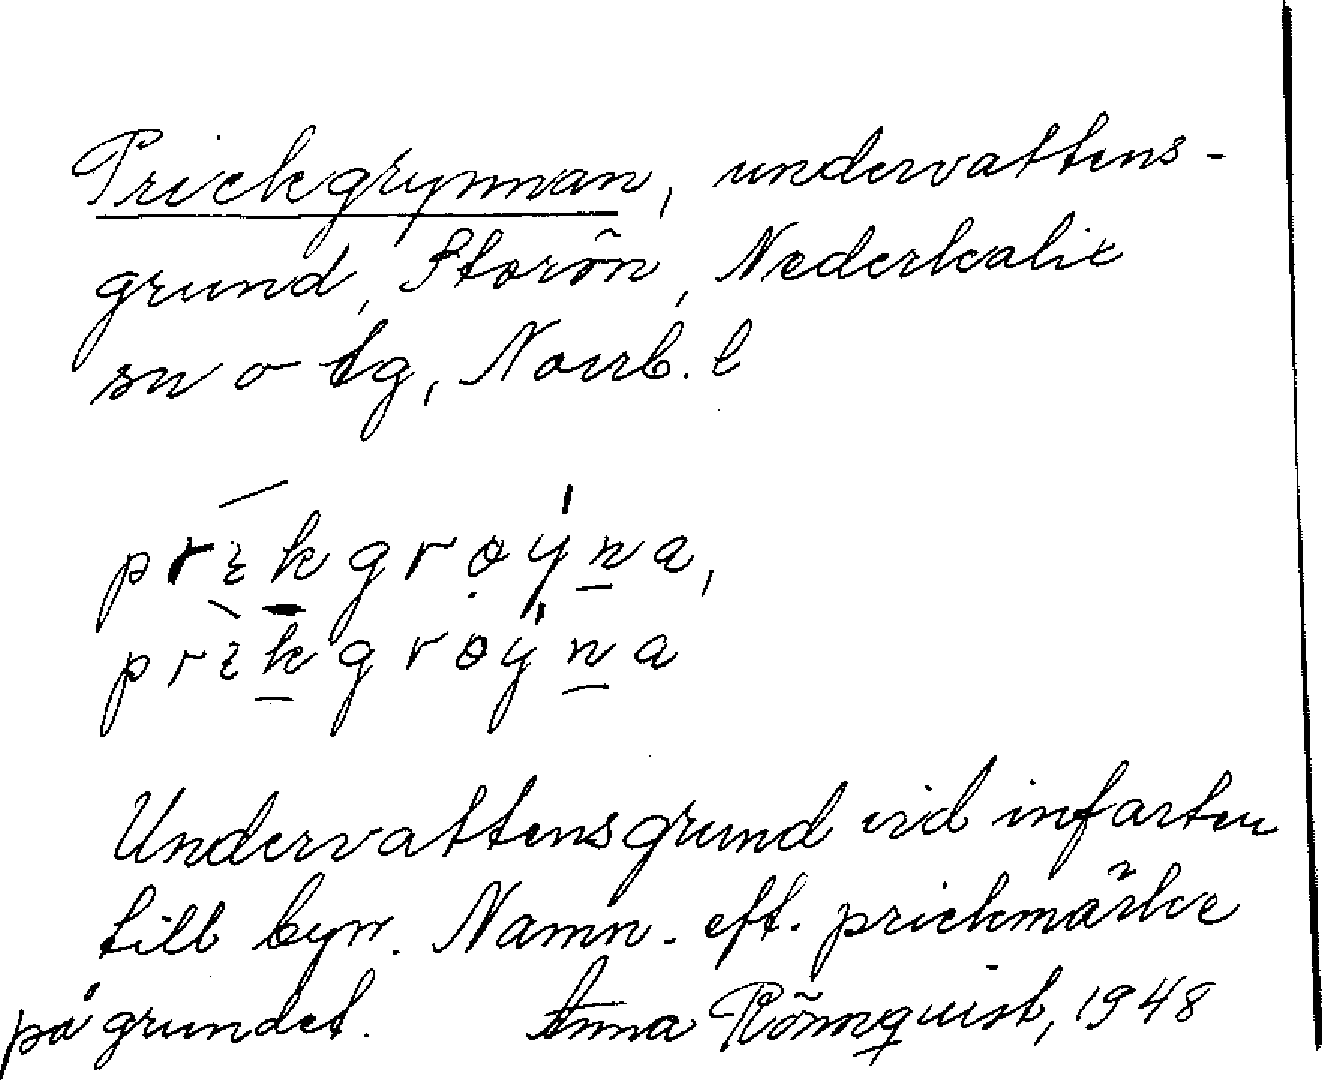 Prickgrynnan, undervattens-
grund, Storön, Nederkalix
sn o tg, Norrb. l
prɩkgrøýna,
prɩkgrøýna
Undervattensgrund vid infarten
till byn. Namn. eft. prickmärke
på grundet. Anna Rönnquist, 1948